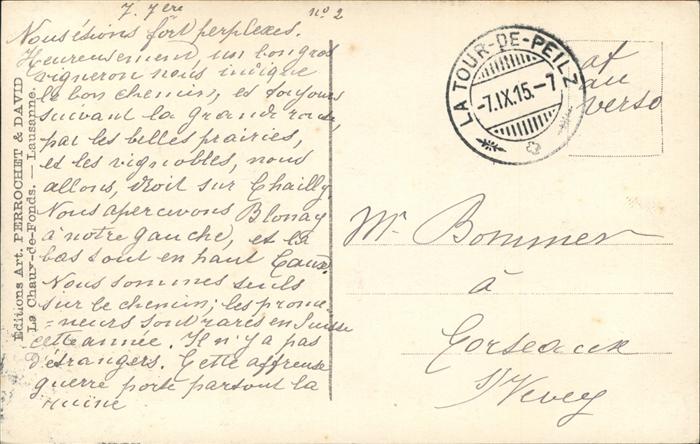 7. 7ère
n° 2
Nous étions fort perplexes.
Heureusement, un bon gros
vigneron nous indique
le bon chemin, et toujours
suivant la grande route,
par les belles prairies,
et les vignobles, nous
allons, droit sur Chailly,
Nous apercevons Blonay
à notre gauche, et là
bas tout en haut Caux.
Nous sommes seuls
sur le chemin; les prome-
=neurs sont rares en Suisse
cette année. Il n'y a pas
d'étrangers. Cette affreuse
guerre porte partout la
ruine
Editions Art. PERROCHET & DAVID
La Chaux-de-Fonds. — Lausanne.
LA TOUR-DE-PEILZ
-7.IX.15.-7
au
verso
Mr Bommer
à
Corseaux
s/Vevey